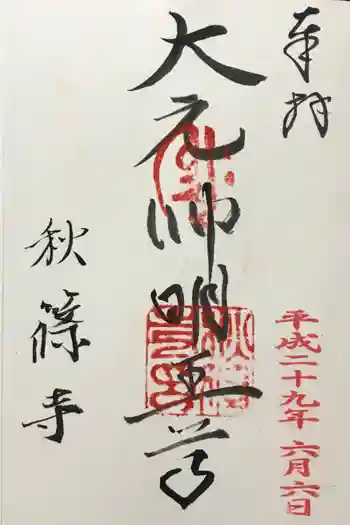 奉拝
大元帥明王尊
秋篠寺
平成二十九年 六月六日